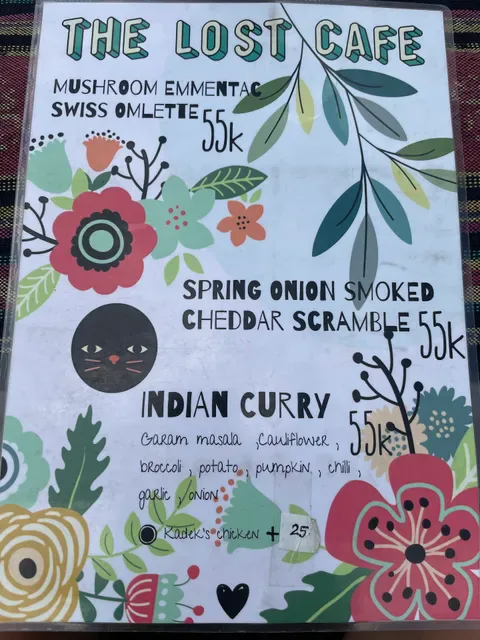 THE LOST CAFE
MUSHROOM EMMENTAC
SWISS OMLETTE 55k
SPRING ONION SMOKED
CHEDDAR SCRAMBLE 55k
INDIAN CURRY 55k
Garam masala , Cauliflower ,
broccoli , potato , pumpkin , chilli ,
garlic , onion
Kadek's chicken + 25